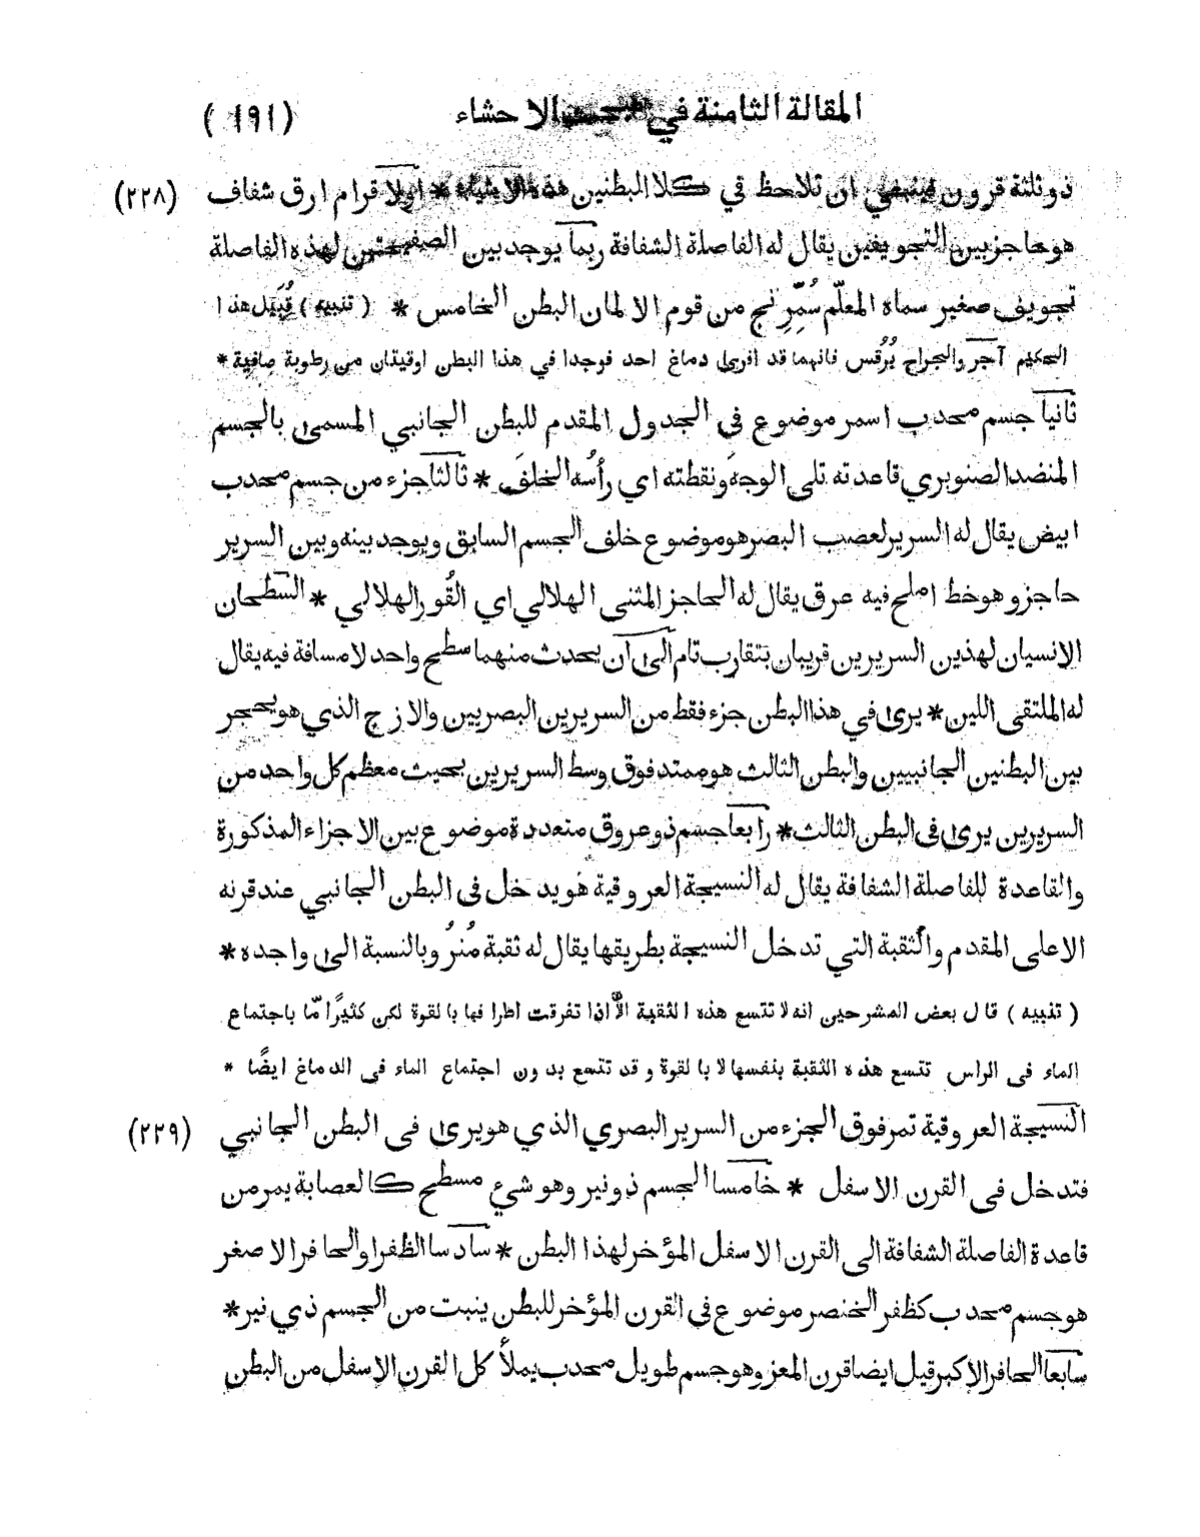 المقالة الثامنة في الاحشاء (١٩١)
ذو ثلثة قرون فينبغي ان تلاحظ في كلا البطنين هذه الاشياء * اولا قوام ارق شفاف (٢٢٨)
هو حاجز بين التجويفين يقال له الفاصلة الشفافة ربما يوجد بين الصفيحتين لهذه الفاصلة
تجويف صغير سماه المعلّم سُمِّرِنج من قوم الالمان البطن الخامس * ( تنبيه ) قُبَيل هذا
الحكيم آجر والجراح بُرُقس فانهما قد افريا دماغ احد فوجدا في هذا البطن اوقيتان من رطوبة صافية *
ثانيا جسم محدب اسمر موضوع في الجدول المقدم للبطن الجانبي المسمى بالجسم
المنضد الصنوبري قاعدته تلى الوجهَ ونقطته اي رأسُه الخلفَ * ثالثا جزء من جسم محدب
ابيض يقال له السرير لعصب البصر هو موضوع خلف الجسم السابق ويوجد بينه وبين السرير
حاجز وهو خط املح فيه عرق يقال له الحاجز المثنى الهلالي اي القُور الهلالي * السطحان
الانسيان لهذين السريرين قريبان بتقارب تام الى ان يحدث منهما سطح واحد لا مسافة فيه يقال
له الملتقى اللين * يرى في هذا البطن جزء فقط من السريرين البصريين والازج الذي هو يحجر
بين البطنين الجانبيين والبطن الثالث هو ممتد فوق وسط السريرين بحيث معظم كل واحد من
السريرين يرى فى البطن الثالث * رابعا جسم ذو عروق متعددة موضوع بين الاجزاء المذكورة
والقاعدة للفاصلة الشفافة يقال له النسيجة العروقية هو يدخل فى البطن الجانبي عند قرنه
الاعلى المقدم والثقبة التي تدخل النسيجة بطريقها يقال له ثقبة مُنرُو بالنسبة الى واجده *
( تنبيه ) قال بعض المشرحين انه لا تتسع هذه الثقبة الّا اذا تفرقت اطرافها بالقوة لكن كثيرًا مّا باجتماع
الماء فى الراس تتسع هذه الثقبة بنفسها لا بالقوة و قد تتسع بدون اجتماع الماء فى الدماغ ايضًا *
النسيجة العروقية تمر فوق الجزء من السرير البصري الذي هو يرى فى البطن الجانبي (٢٢٩)
فتدخل فى القرن الاسفل * خامسا الجسم ذو نير وهو شيء مسطح كالعصابة يمر من
قاعدة الفاصلة الشفافة الى القرن الاسفل المؤخر لهذا البطن * سادسا الظفر او الحافر الاصغر
هو جسم محدب كظفر الخنصر موضوع فى القرن المؤخر للبطن ينبت من الجسم ذي نير *
سابعا الحافر الاكبر قيل ايضا قرن المعز وهو جسم طويل محدب يملأ كل القرن الاسفل من البطن